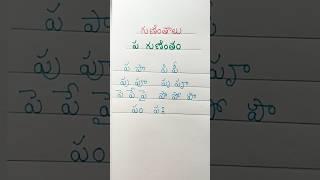 గుణింతాలు
ప గుణింతం
ప పా పి పీ
పు పూ పృ పౄ
పె పే పై పొ పో పౌ
పం పః